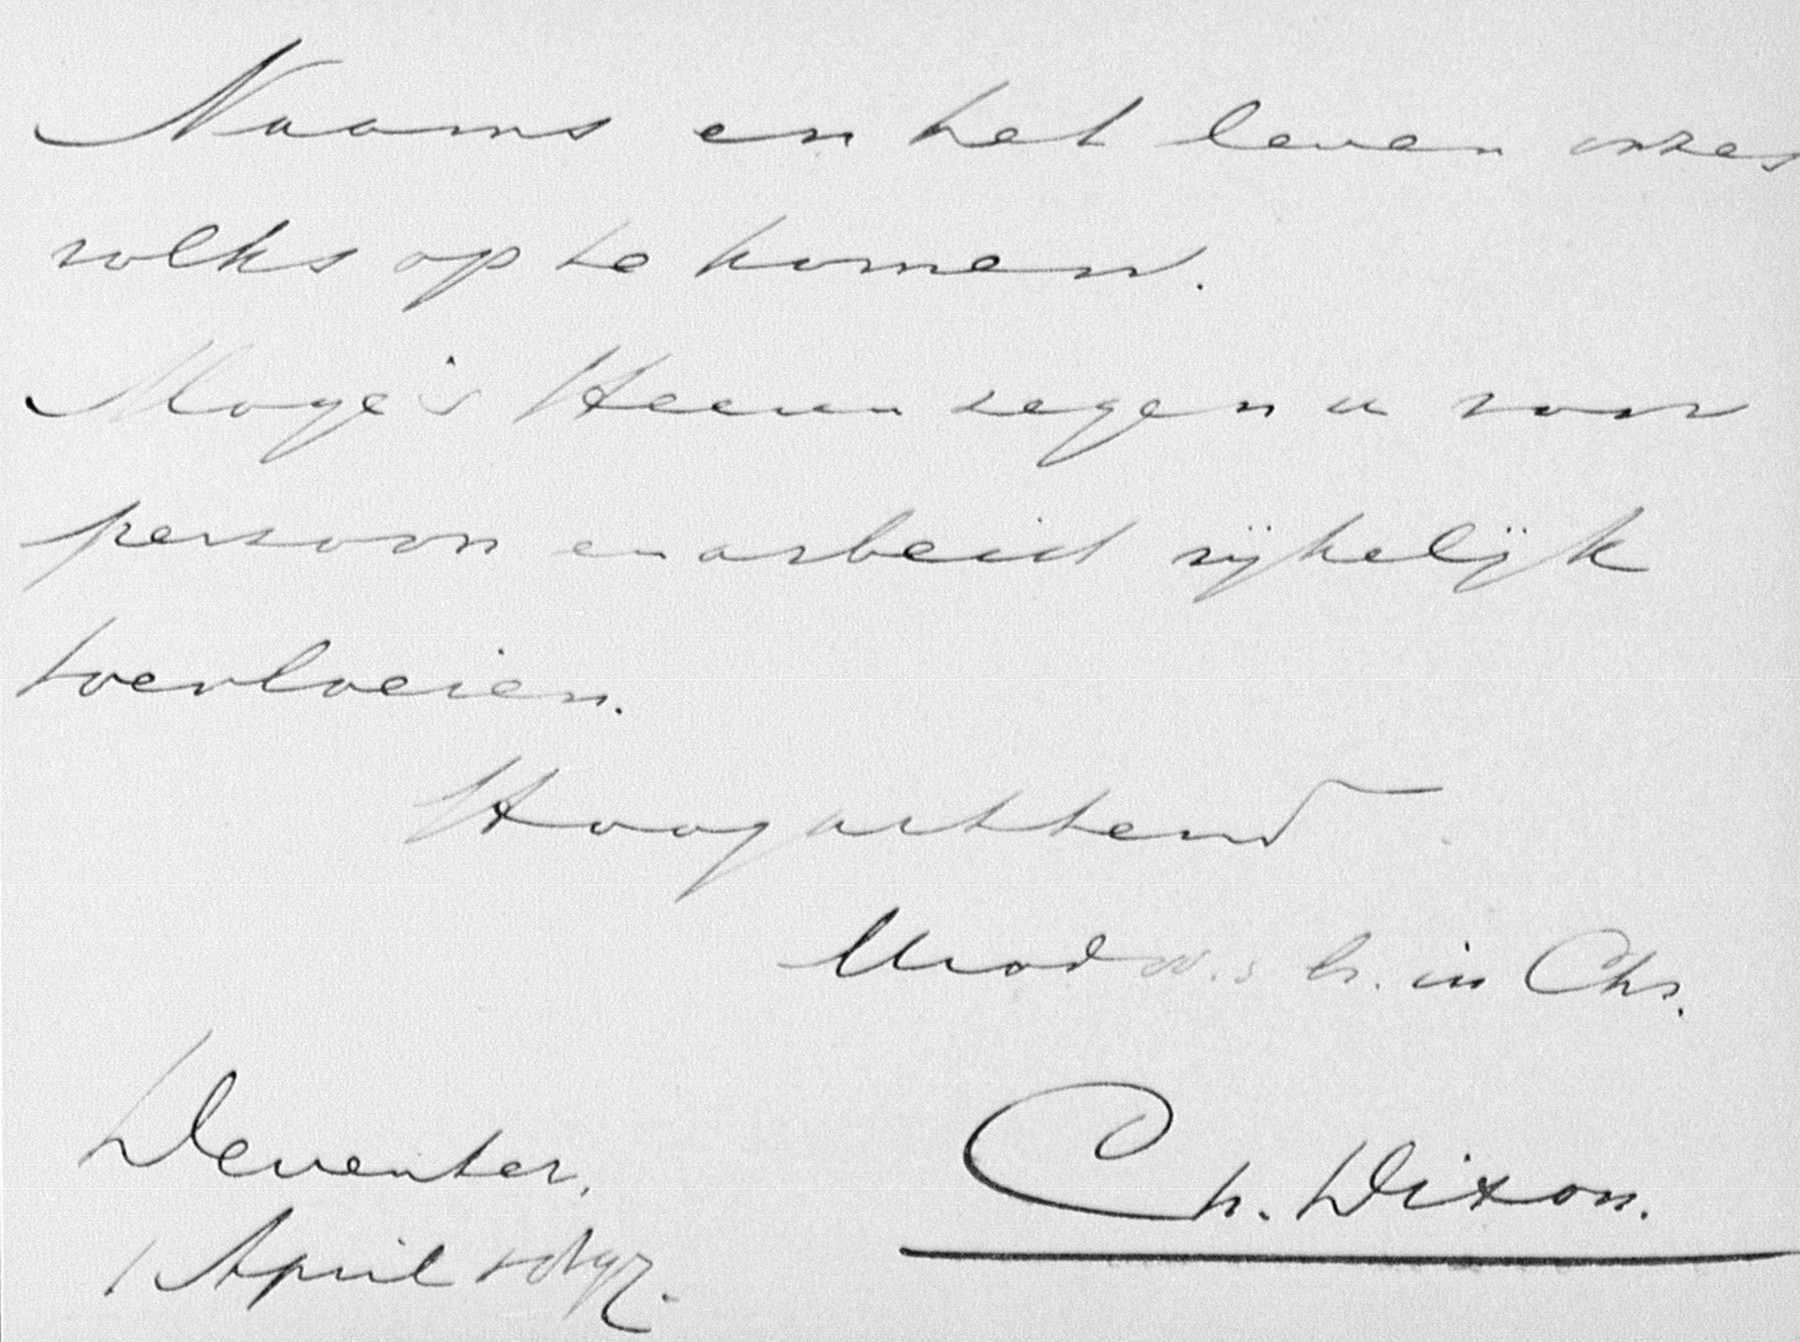 Naams en het leven onzes
volks op te komen.
Moge 's Heeren zegen u voor
persoon en arbeid rijkelijk
toevloeien.
Hoogachtend
Uwd w. s br. in Chr.
Deventer, Ch. Dixon.
1 April 1897.